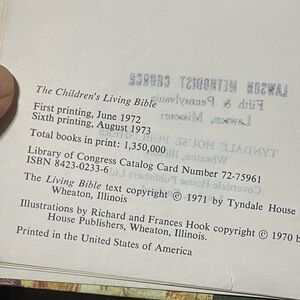 LAWSON METHODIST CHURCH
Fifth & Pennsylvania
Lawson, Missouri
TYNDALE HOUSE PUBLISHERS
Wheaton, Illinois
Coverdale House Publishers Ltd.
The Children's Living Bible
First printing, June 1972
Sixth printing, August 1973
Total books in print: 1,350,000
Library of Congress Catalog Card Number 72-75961
ISBN 8423-0233-6
The Living Bible text copyright © 1971 by Tyndale House
Wheaton, Illinois
Illustrations by Richard and Frances Hook copyright © 1970 b
House Publishers, Wheaton, Illinois.
Printed in the United States of America